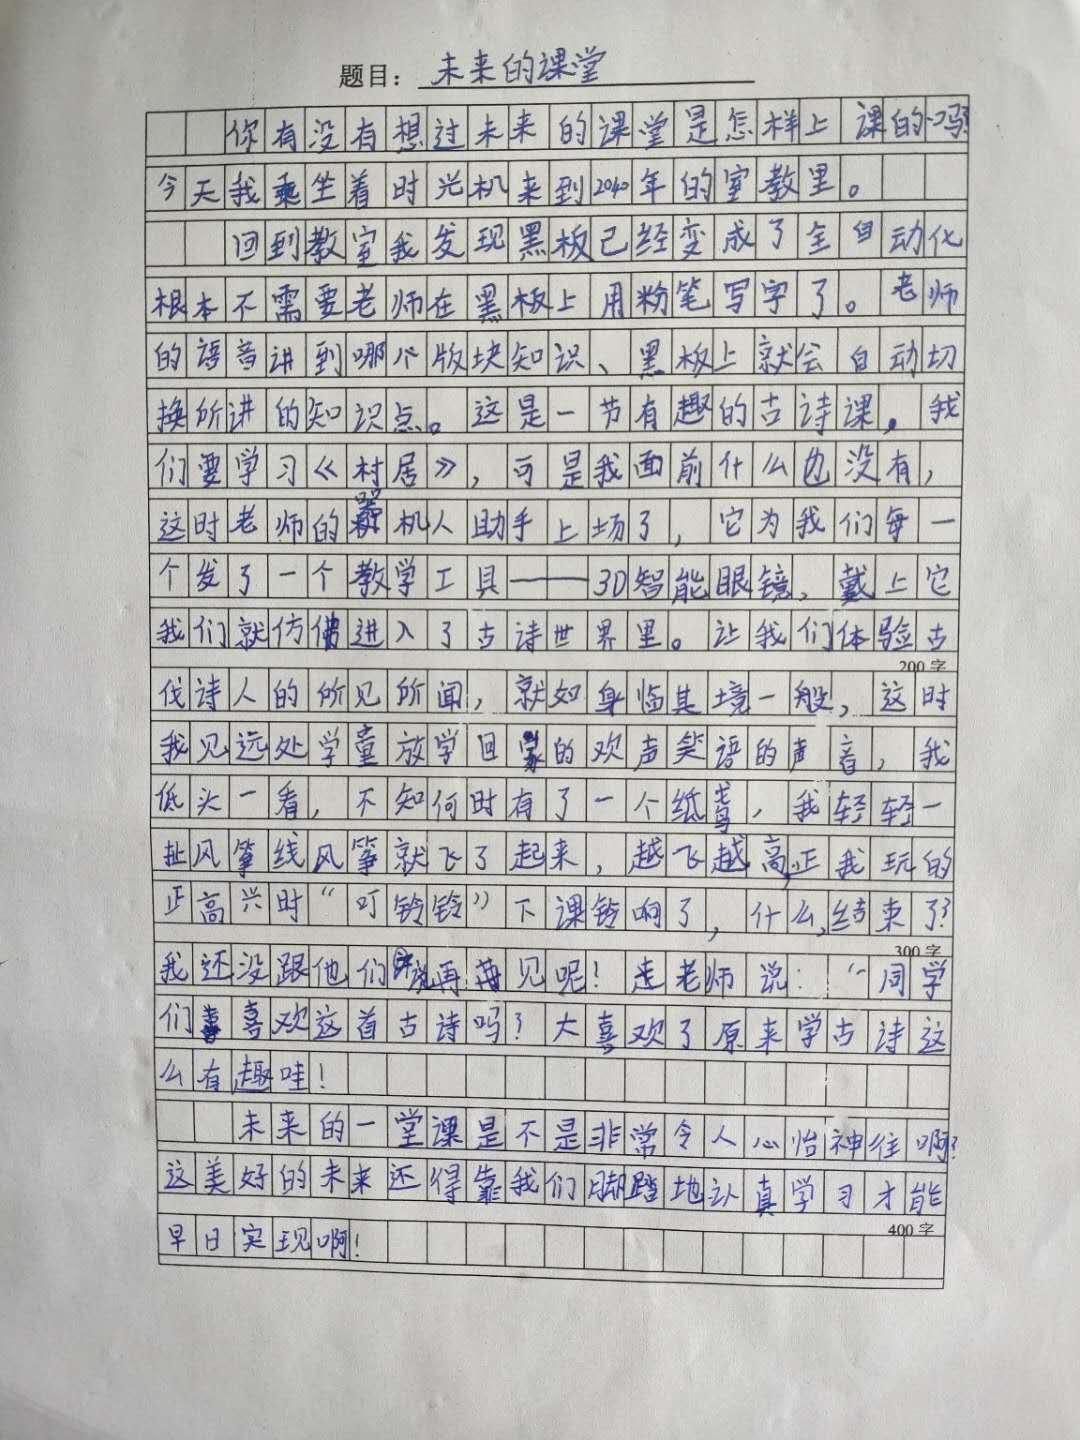 题目：未来的课堂
你有没有想过未来的课堂是怎样上课的吗?
今天我乘坐着时光机来到2040年的室教里。
回到教室我发现黑板已经变成了全自动化
根本不需要老师在黑板上用粉笔写字了。老师
的语音讲到哪个版块知识、黑板上就会自动切
换所讲的知识点。这是一节有趣的古诗课。我
们要学习《村居》，可是我面前什么也没有，
这时老师的机人助手上场了，它为我们每一
个发了一个教学工具——3D智能眼镜，戴上它
我们就仿佛进入了古诗世界里。让我们体验古
200字
伐诗人的所见所闻，就如身临其境一般，这时
我见远处学童放学回家的欢声笑语的声音，我
低头一看，不知何时有了一个纸鸢，我轻轻一
扯风筝线风筝就飞了起来，越飞越高,正我玩的
正高兴时“叮铃铃”下课铃响了，什么,结束了?
300字
我还没跟他们说再见呢！走老师说：“同学
们喜欢这首古诗吗？大喜欢了原来学古诗这
么有趣哇！
未来的一堂课是不是非常令人心怡神往啊?
这美好的未来还得靠我们脚踏地认真学习才能
400字
早日实现啊！